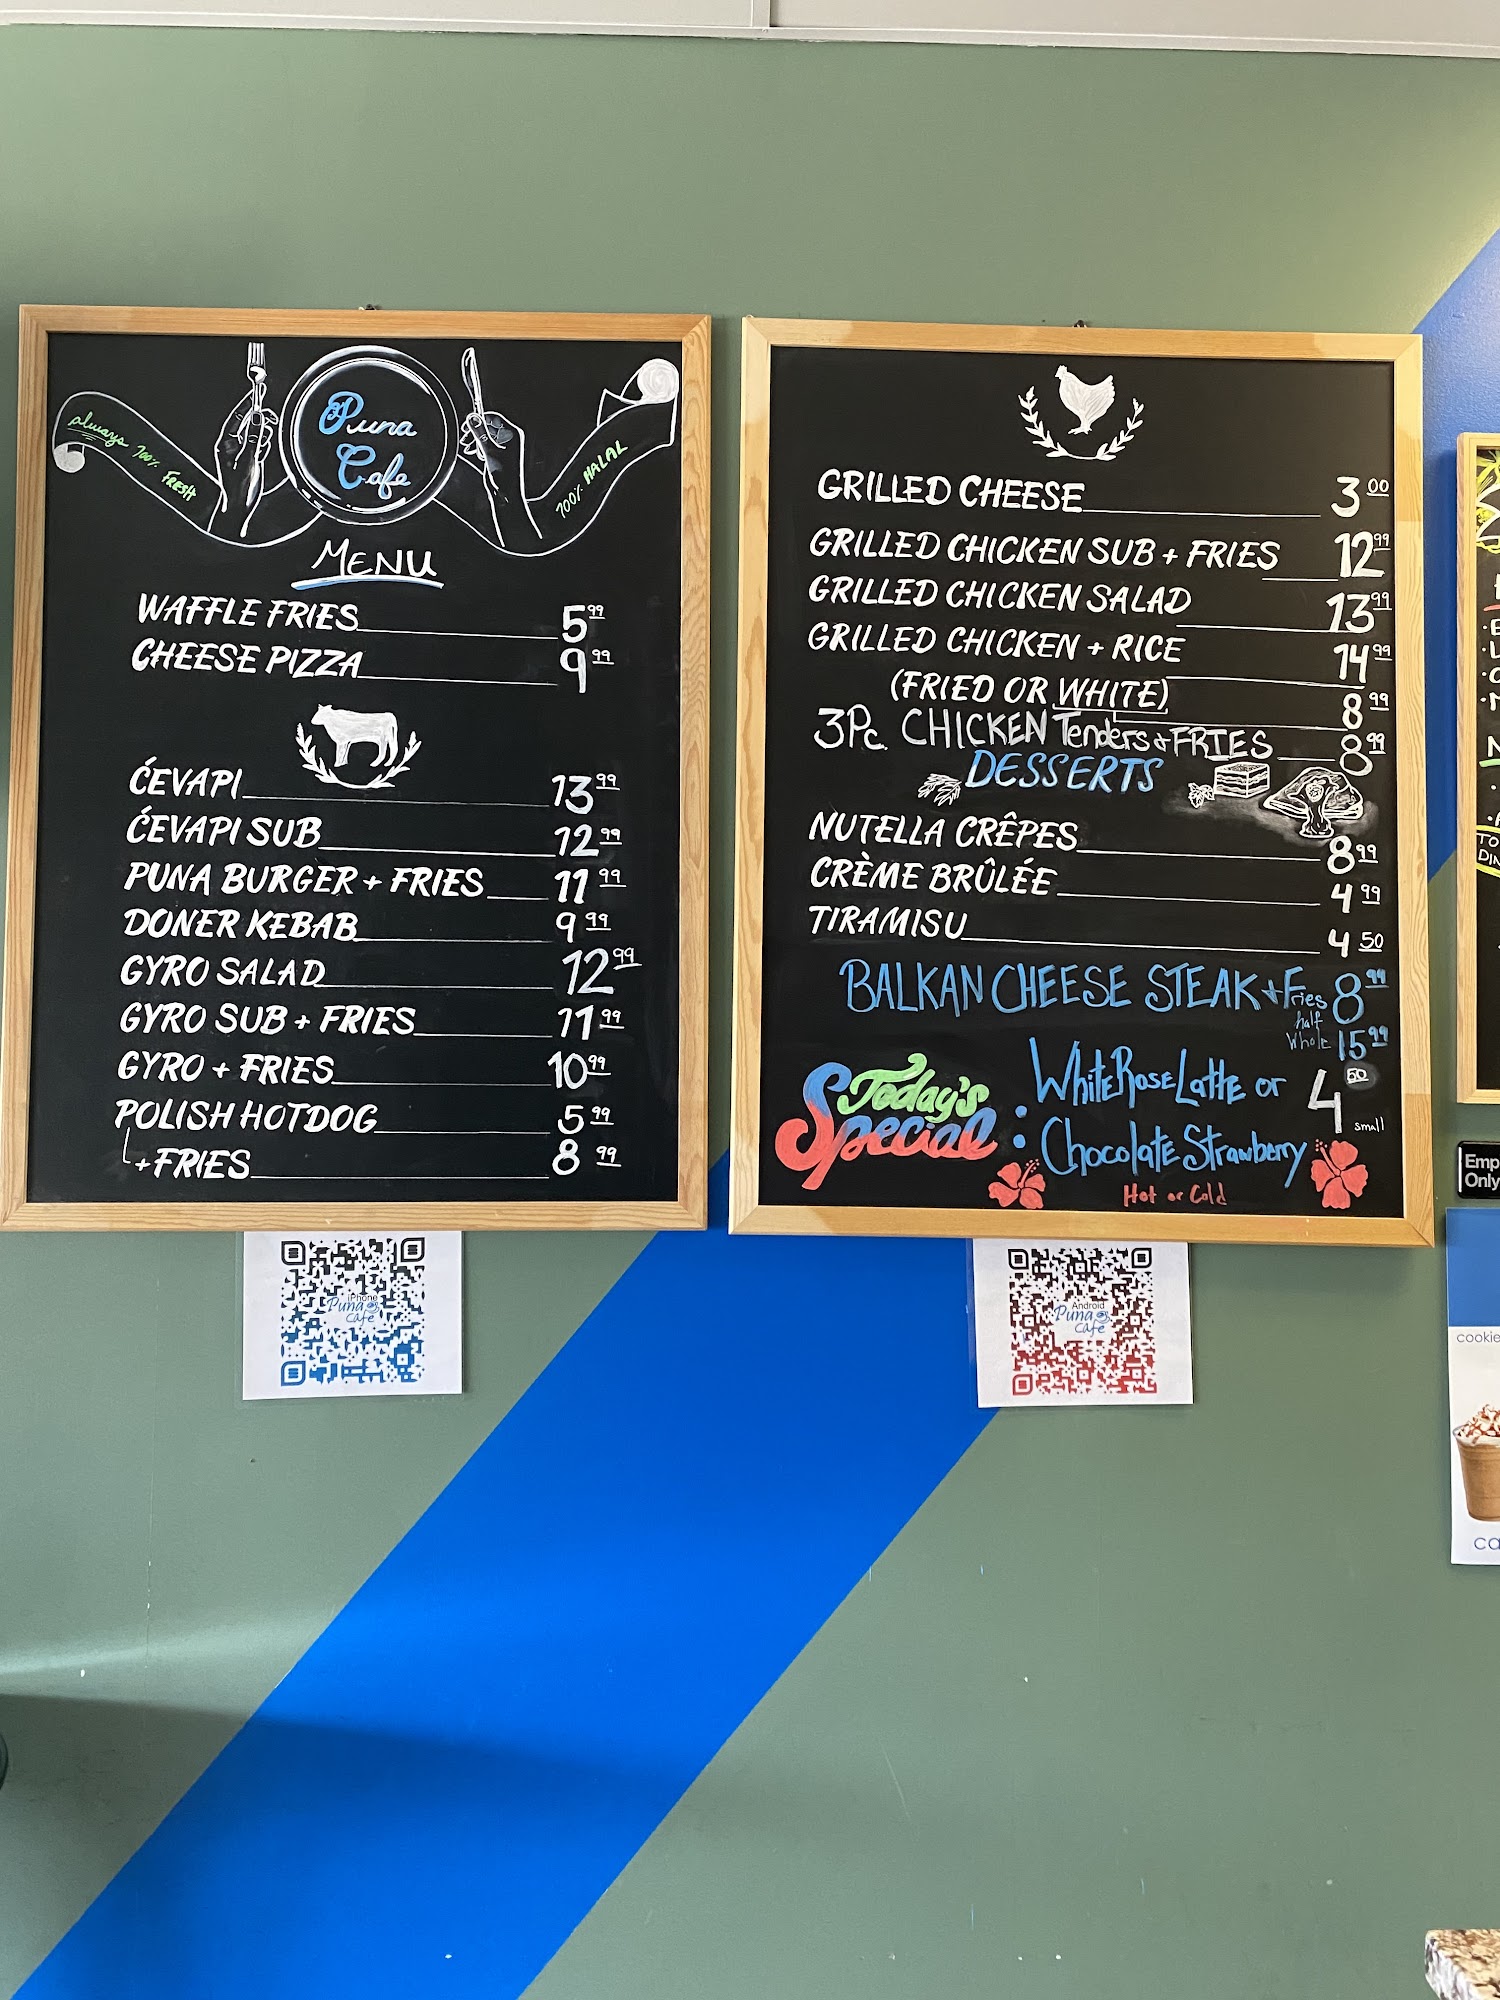 always 100% FRESH
Puna
Cafe
100% HALAL
MENU
WAFFLE FRIES 5.99
CHEESE PIZZA 9.99
ĆEVAPI 13.99
ĆEVAPI SUB 12.99
PUNA BURGER + FRIES 11.99
DONER KEBAB 9.99
GYRO SALAD 12.99
GYRO SUB + FRIES 11.99
GYRO + FRIES 10.99
POLISH HOTDOG 5.99
+ FRIES 8.99
iPhone
Puna
Cafe
GRILLED CHEESE 3.00
GRILLED CHICKEN SUB + FRIES 12.99
GRILLED CHICKEN SALAD 13.99
GRILLED CHICKEN + RICE 14.99
(FRIED OR WHITE) 8.99
3Pc. CHICKEN Tenders + FRIES 8.99
DESSERTS
NUTELLA CRÊPES 8.99
CRÈME BRÛLÉE 4.99
TIRAMISU 4.50
BALKAN CHEESE STEAK + Fries 8.99
half
Whole 15.99
Today's
Special :
White Rose Latte or 4.50
Chocolate Strawberry small
Hot or Cold
Android
Puna
Cafe
Emp
Only
cookie
ca